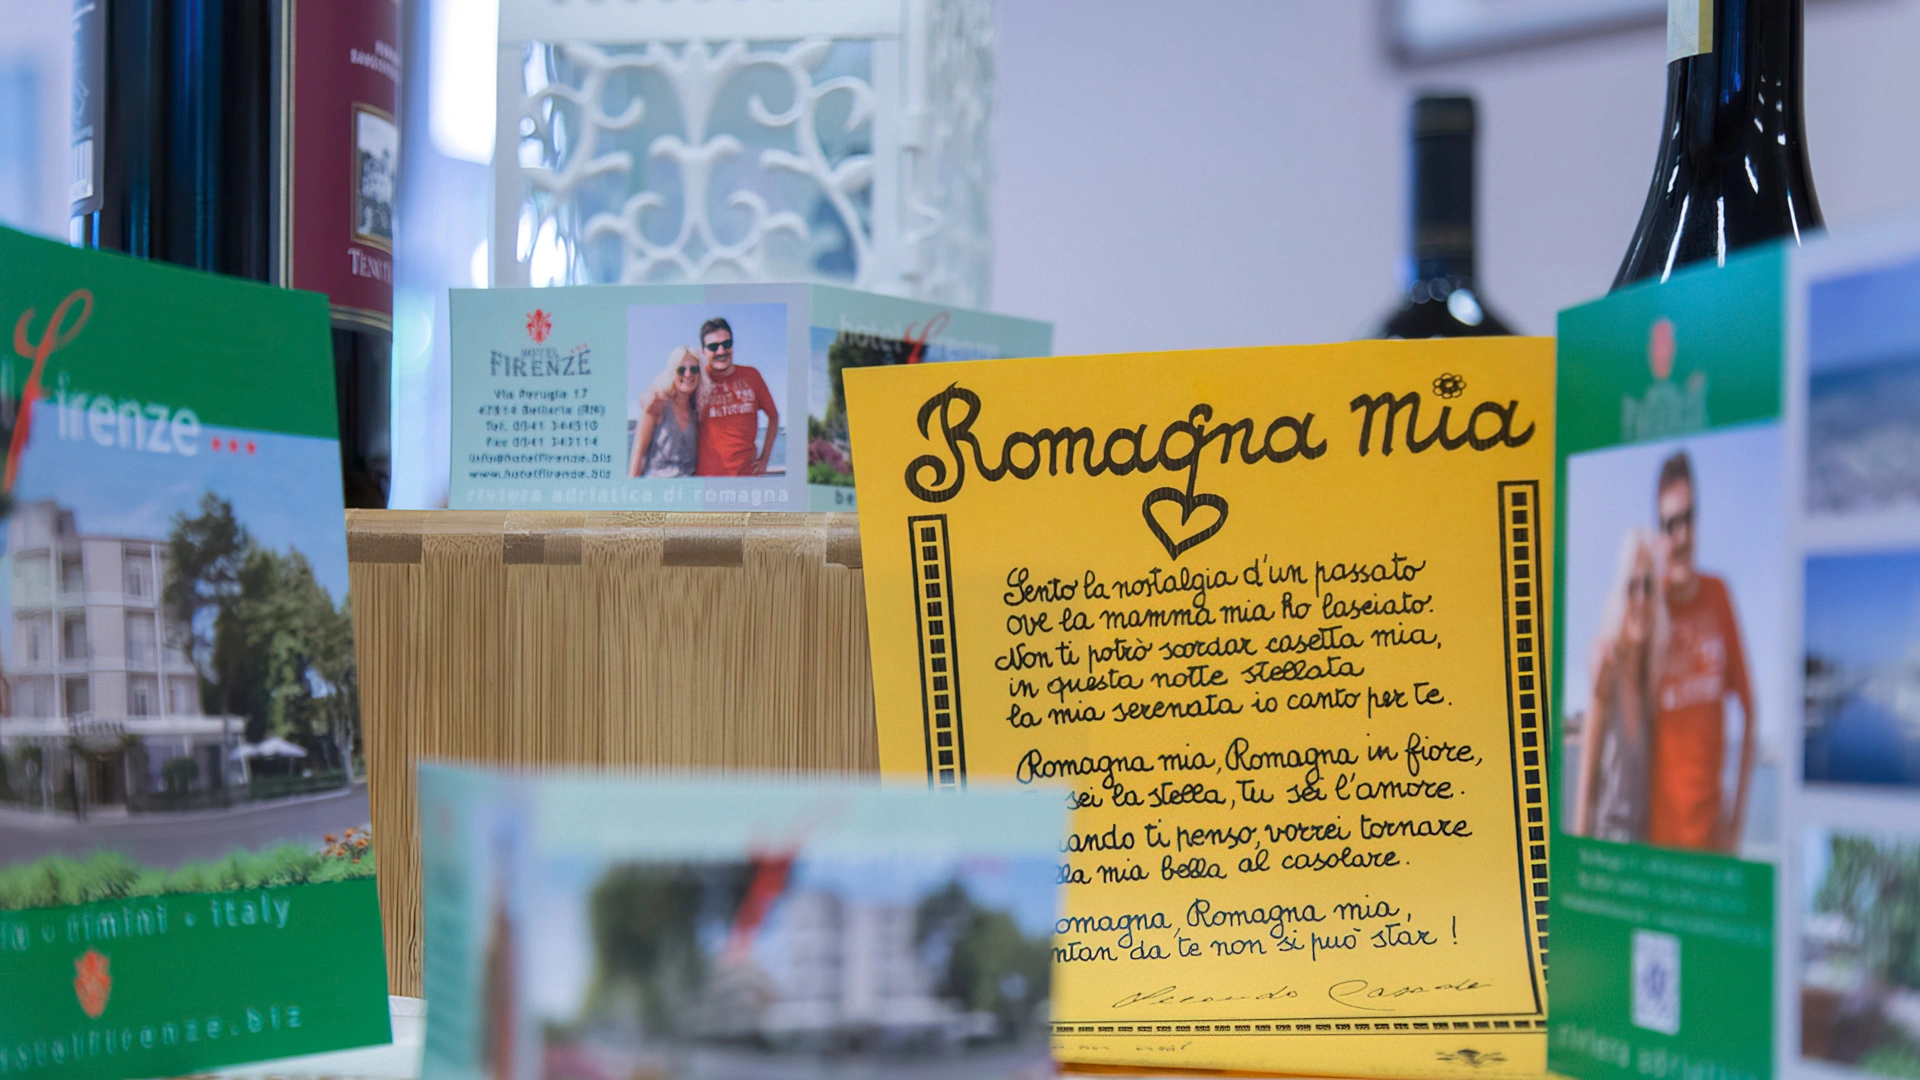 Firenze
rimini • italy
hotelfirenze.biz
TENUTA
HOTEL
FIRENZE
Via Perugia 17
47814 Bellaria (RN)
Tel. 0541 344510
info@hotelfirenze.biz
www.hotelfirenze.biz
riviera adriatica di romagna
hotel Firenze
be
Romagna mia
Sento la nostalgia d'un passato
ove la mamma mia ho lasciato.
Non ti potrò scordar casetta mia,
in questa notte stellata
la mia serenata io canto per te.
Romagna mia, Romagna in fiore,
sei la stella, tu sei l'amore.
ando ti penso, vorrei tornare
la mia bella al casolare.
omagna, Romagna mia,
ntan da te non si può star!
Secondo Casadei
riviera adriatica